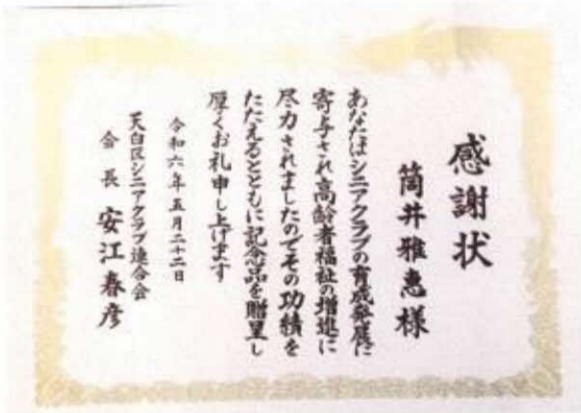 感謝状
筒井雅惠様
あなたはシニアクラブの育成発展に
寄与され高齢者福祉の増進に
尽力されましたのでその功績を
たたえるとともに記念品を贈呈し
厚くお礼申し上げます
令和六年五月二十二日
天白区シニアクラブ連合会
会長 安江春彦